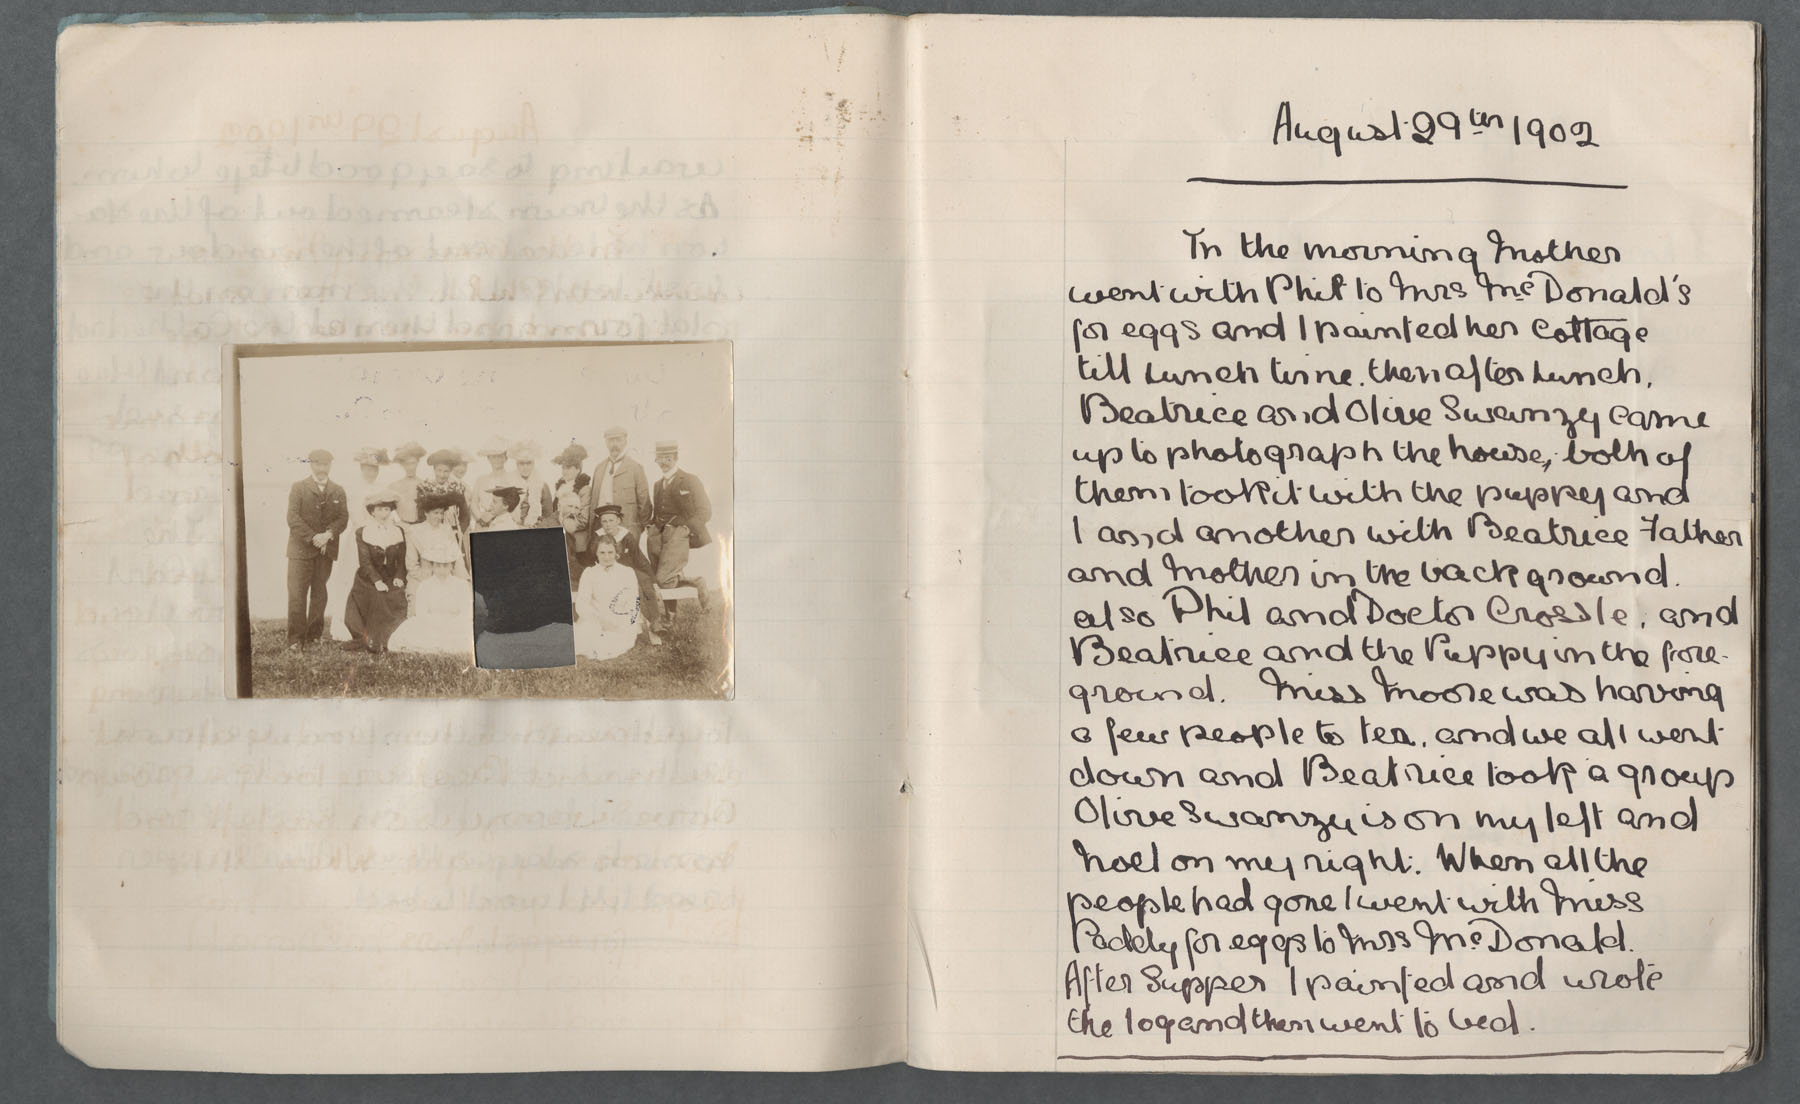 August 29th 1902
In the morning Mother
went with Phil to Mrs McDonald's
for eggs and I painted her cottage
till Lunch time. then after Lunch,
Beatrice and Olive Swanzy came
up to photograph the house, both of
them took it with the puppy and
I and another with Beatrice Father
and Mother in the background.
also Phil and Doctor Crossle, and
Beatrice and the Puppy in the fore-
ground. Miss Moore was having
a few people to tea, and we all went
down and Beatrice took a group
Olive Swanzy is on my left and
Noel on my right. When all the
people had gone I went with Miss
Paddy for eggs to Mrs McDonald.
After Supper I painted and wrote
the log and then went to bed.